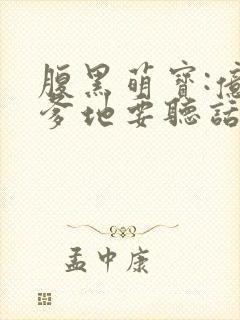 腹黑萌寶:億
爹地要聽話
孟中康